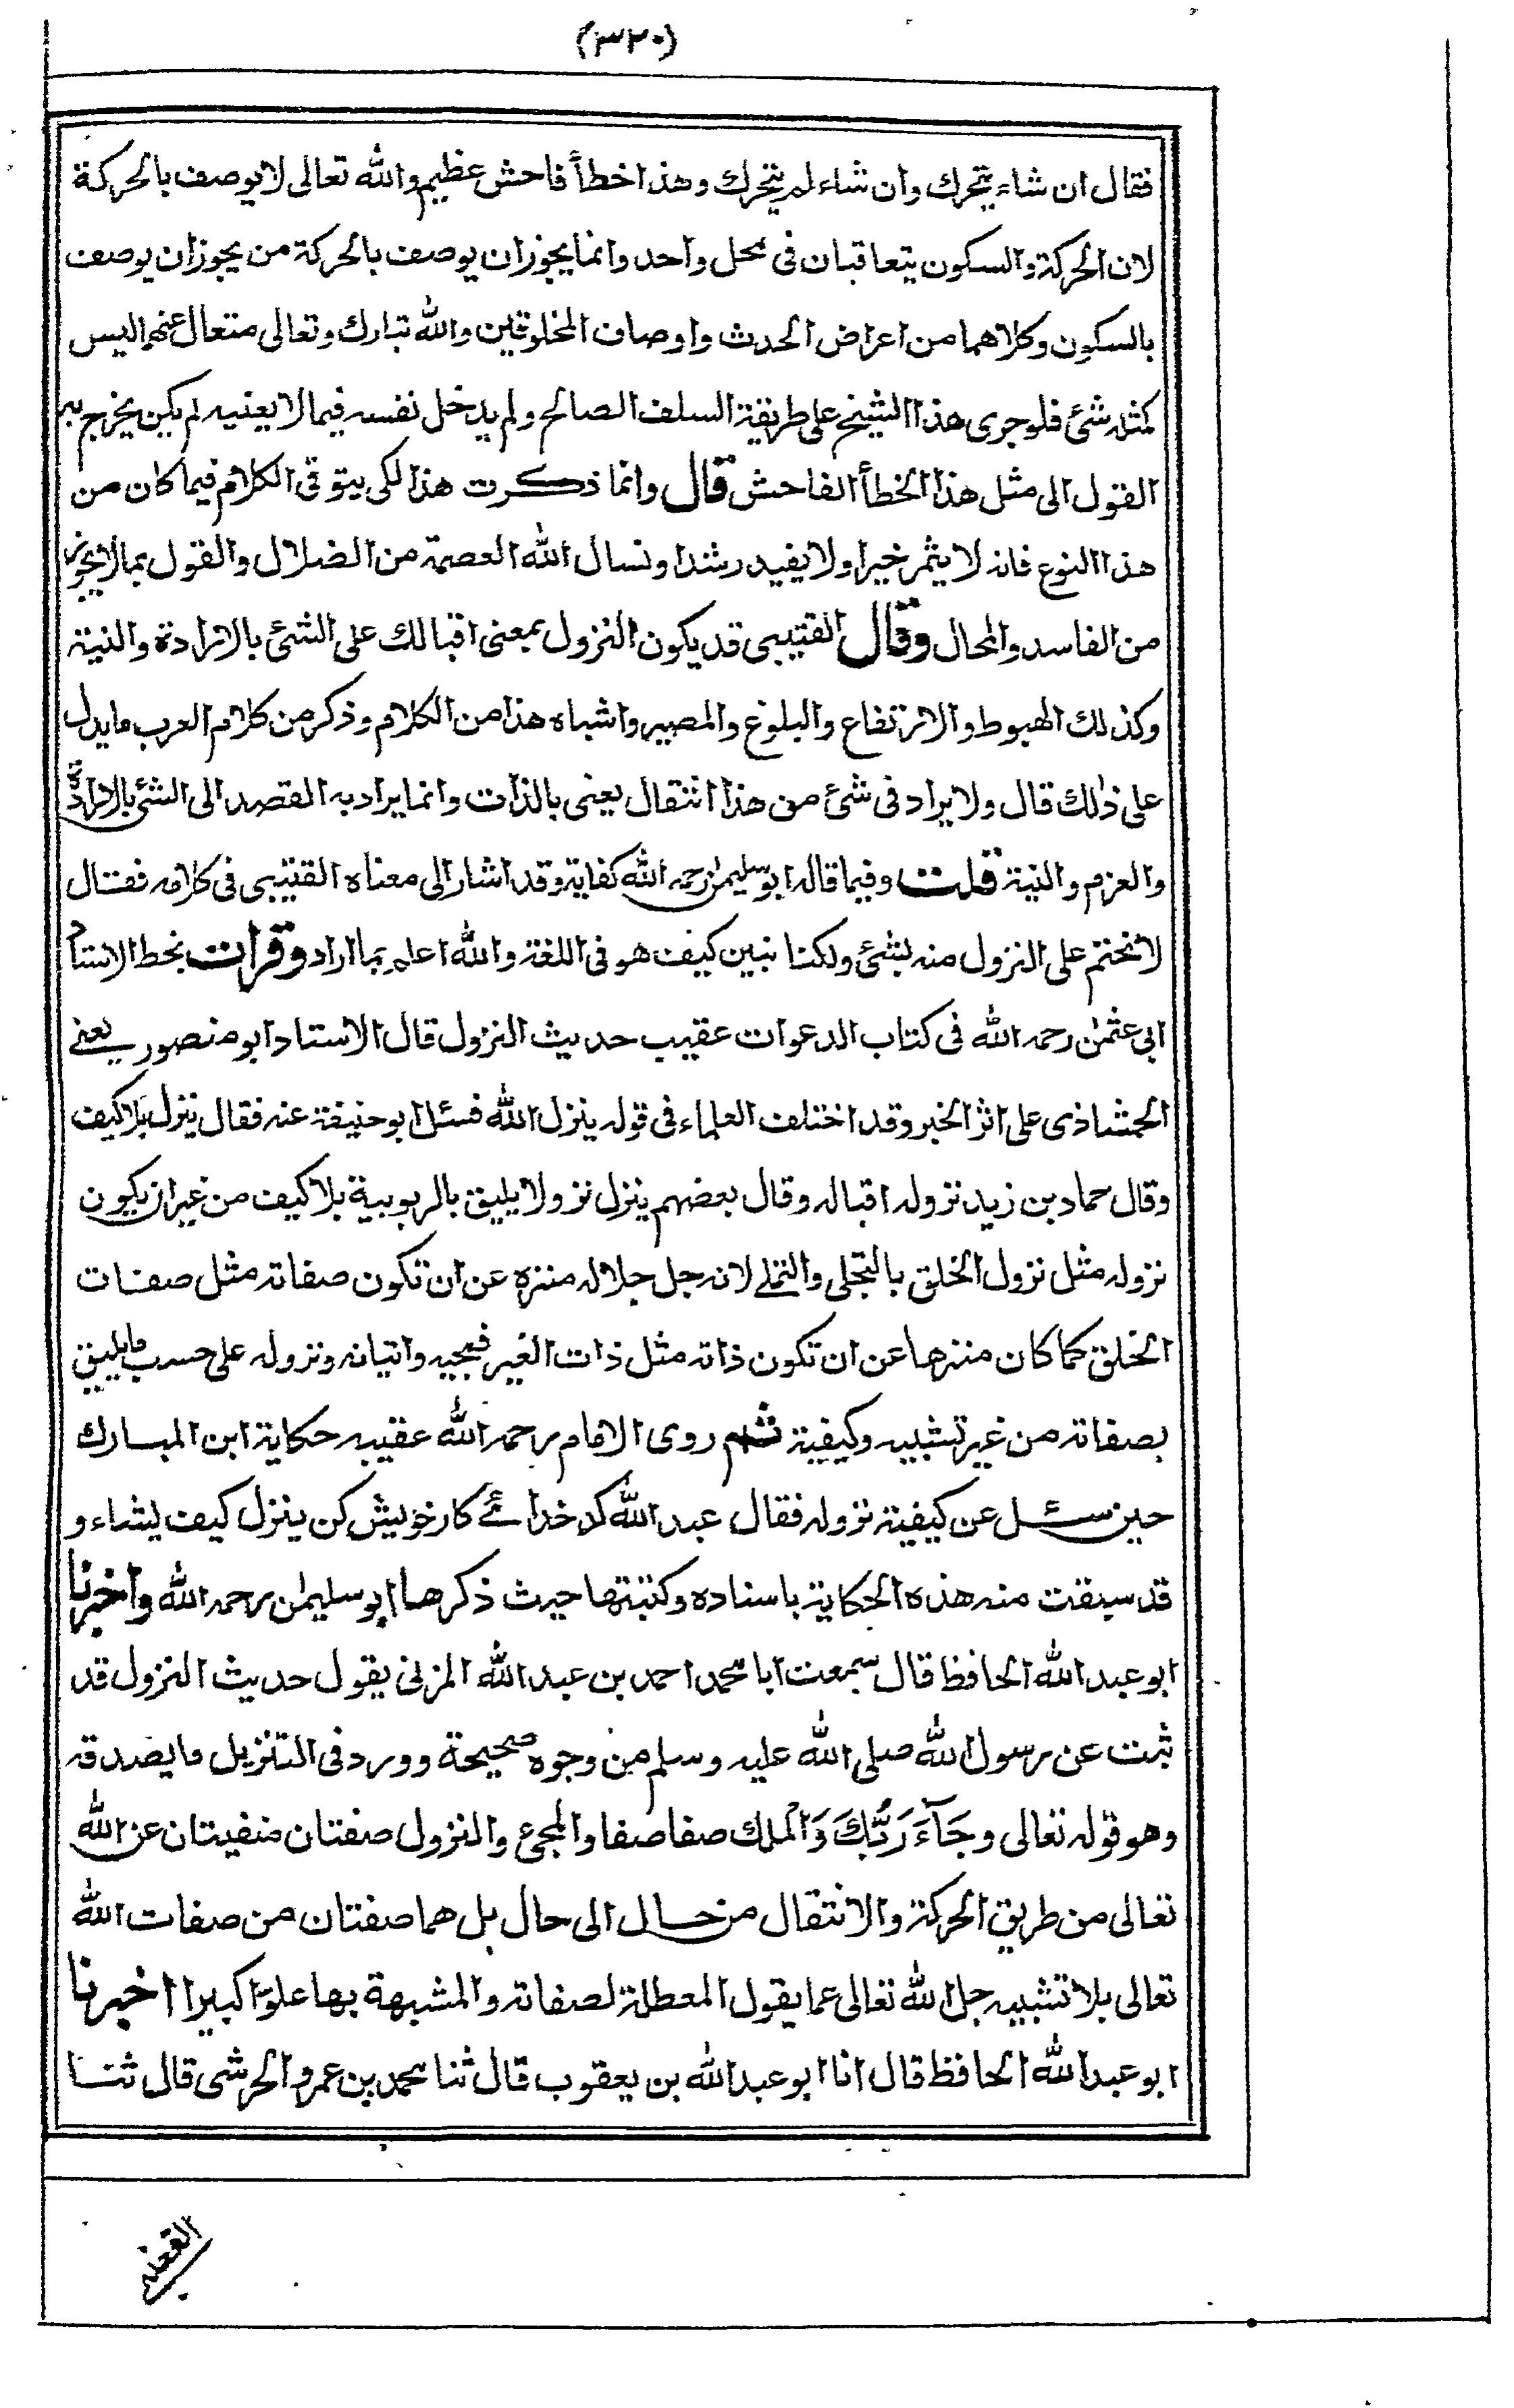 (٣٢٠)
فقال ان شاء يتحرك وان شاء لم يتحرك وهذا خطأ فاحش عظيم والله تعالى لا يوصف بالحركة
لان الحركة والسكون يتعاقبان فى محل واحد وانما يجوز ان يوصف بالحركة من يجوز ان يوصف
بالسكون وكلاهما من اعراض الحدث واوصاف المخلوقين والله تبارك وتعالى متعال عنهما ليس
كمثله شئ فلو جرى هذا الشيخ على طريقة السلف الصالح ولم يدخل نفسه فيما لا يعنيه لم يكن يخرج به
القول الى مثل هذا الخطأ الفاحش قال وانما ذكرت هذا لكى يتوقى الكلام فيما كان من
هذا النوع فانه لا يثمر خيرا ولا يفيد رشدا ونسال الله العصمة من الضلال والقول بما لا يجوز
من الفاسد والمحال وقال القتيبى قد يكون النزول بمعنى اقبالك على الشئ بالارادة والنية
وكذلك الهبوط والارتفاع والبلوغ والمصير واشباه هذا من الكلام وذكر من كلام العرب ما يدل
على ذلك قال ولا يراد فى شئ من هذا انتقال يعنى بالذات وانما يراد به القصد الى الشئ بالارادة
والعزم والنية قلت وفيما قاله ابو سليمٰن رحمه الله كفاية وقد اشار الى معناه القتيبى فى كلامه فقال
لا نختم على النزول منه بشئ ولكنا نبين كيف هو فى اللغة والله اعلم بما اراد وقرات بخط الاستاد
ابى عثمٰن رحمه الله فى كتاب الدعوات عقيب حديث النزول قال الاستاد ابو منصور يعنے
الحمشاذى على اثر الخبر وقد اختلف العلماء فى قوله ينزل الله فسئل ابو حنيفة عنه فقال ينزل بلا كيف
وقال حماد بن زيد نزوله اقباله وقال بعضهم ينزل نزولا يليق بالربوبية بلا كيف من غير ان يكون
نزوله مثل نزول الخلق بالتجلى والتملے لانه جل جلاله منزه عن ان تكون صفاته مثل صفات
الخلق كما كان منزها عن ان تكون ذاته مثل ذات الغير فمجيه واتيانه ونزوله على حسب ما يليق
بصفاته من غير تشبيه وكيفية ثم روى الامام رحمه الله عقيبه حكاية ابن المبارك
حين سئل عن كيفية نزوله فقال عبد الله كد خدائے كارخويش كن ينزل كيف يشاء و
قد سبقت منه هذه الحكاية باسناده وكتبتها حيث ذكرها ابو سليمٰن رحمه الله واخبرنا
ابو عبد الله الحافظ قال سمعت ابا محمد احمد بن عبد الله المزنى يقول حديث النزول قد
ثبت عن رسول الله صلى الله عليه وسلم من وجوه صحيحة وورد فى التنزيل ما يصدقه
وهو قوله تعالى وجَآءَ رَبُّكَ وَالْملك صفا صفا والمجئ والنزول صفتان منفيتان عن الله
تعالى من طريق الحركة والانتقال من حال الى حال بل هما صفتان من صفات الله
تعالى بلا تشبيه جل الله تعالى عما يقول المعطلة لصفاته والمشبهة بها علوّا كبيرا اخبرنا
ابو عبد الله الحافظ قال انا ابو عبد الله بن يعقوب قال ثنا محمد بن عمرو الحرشى قال ثنا
القعنبى